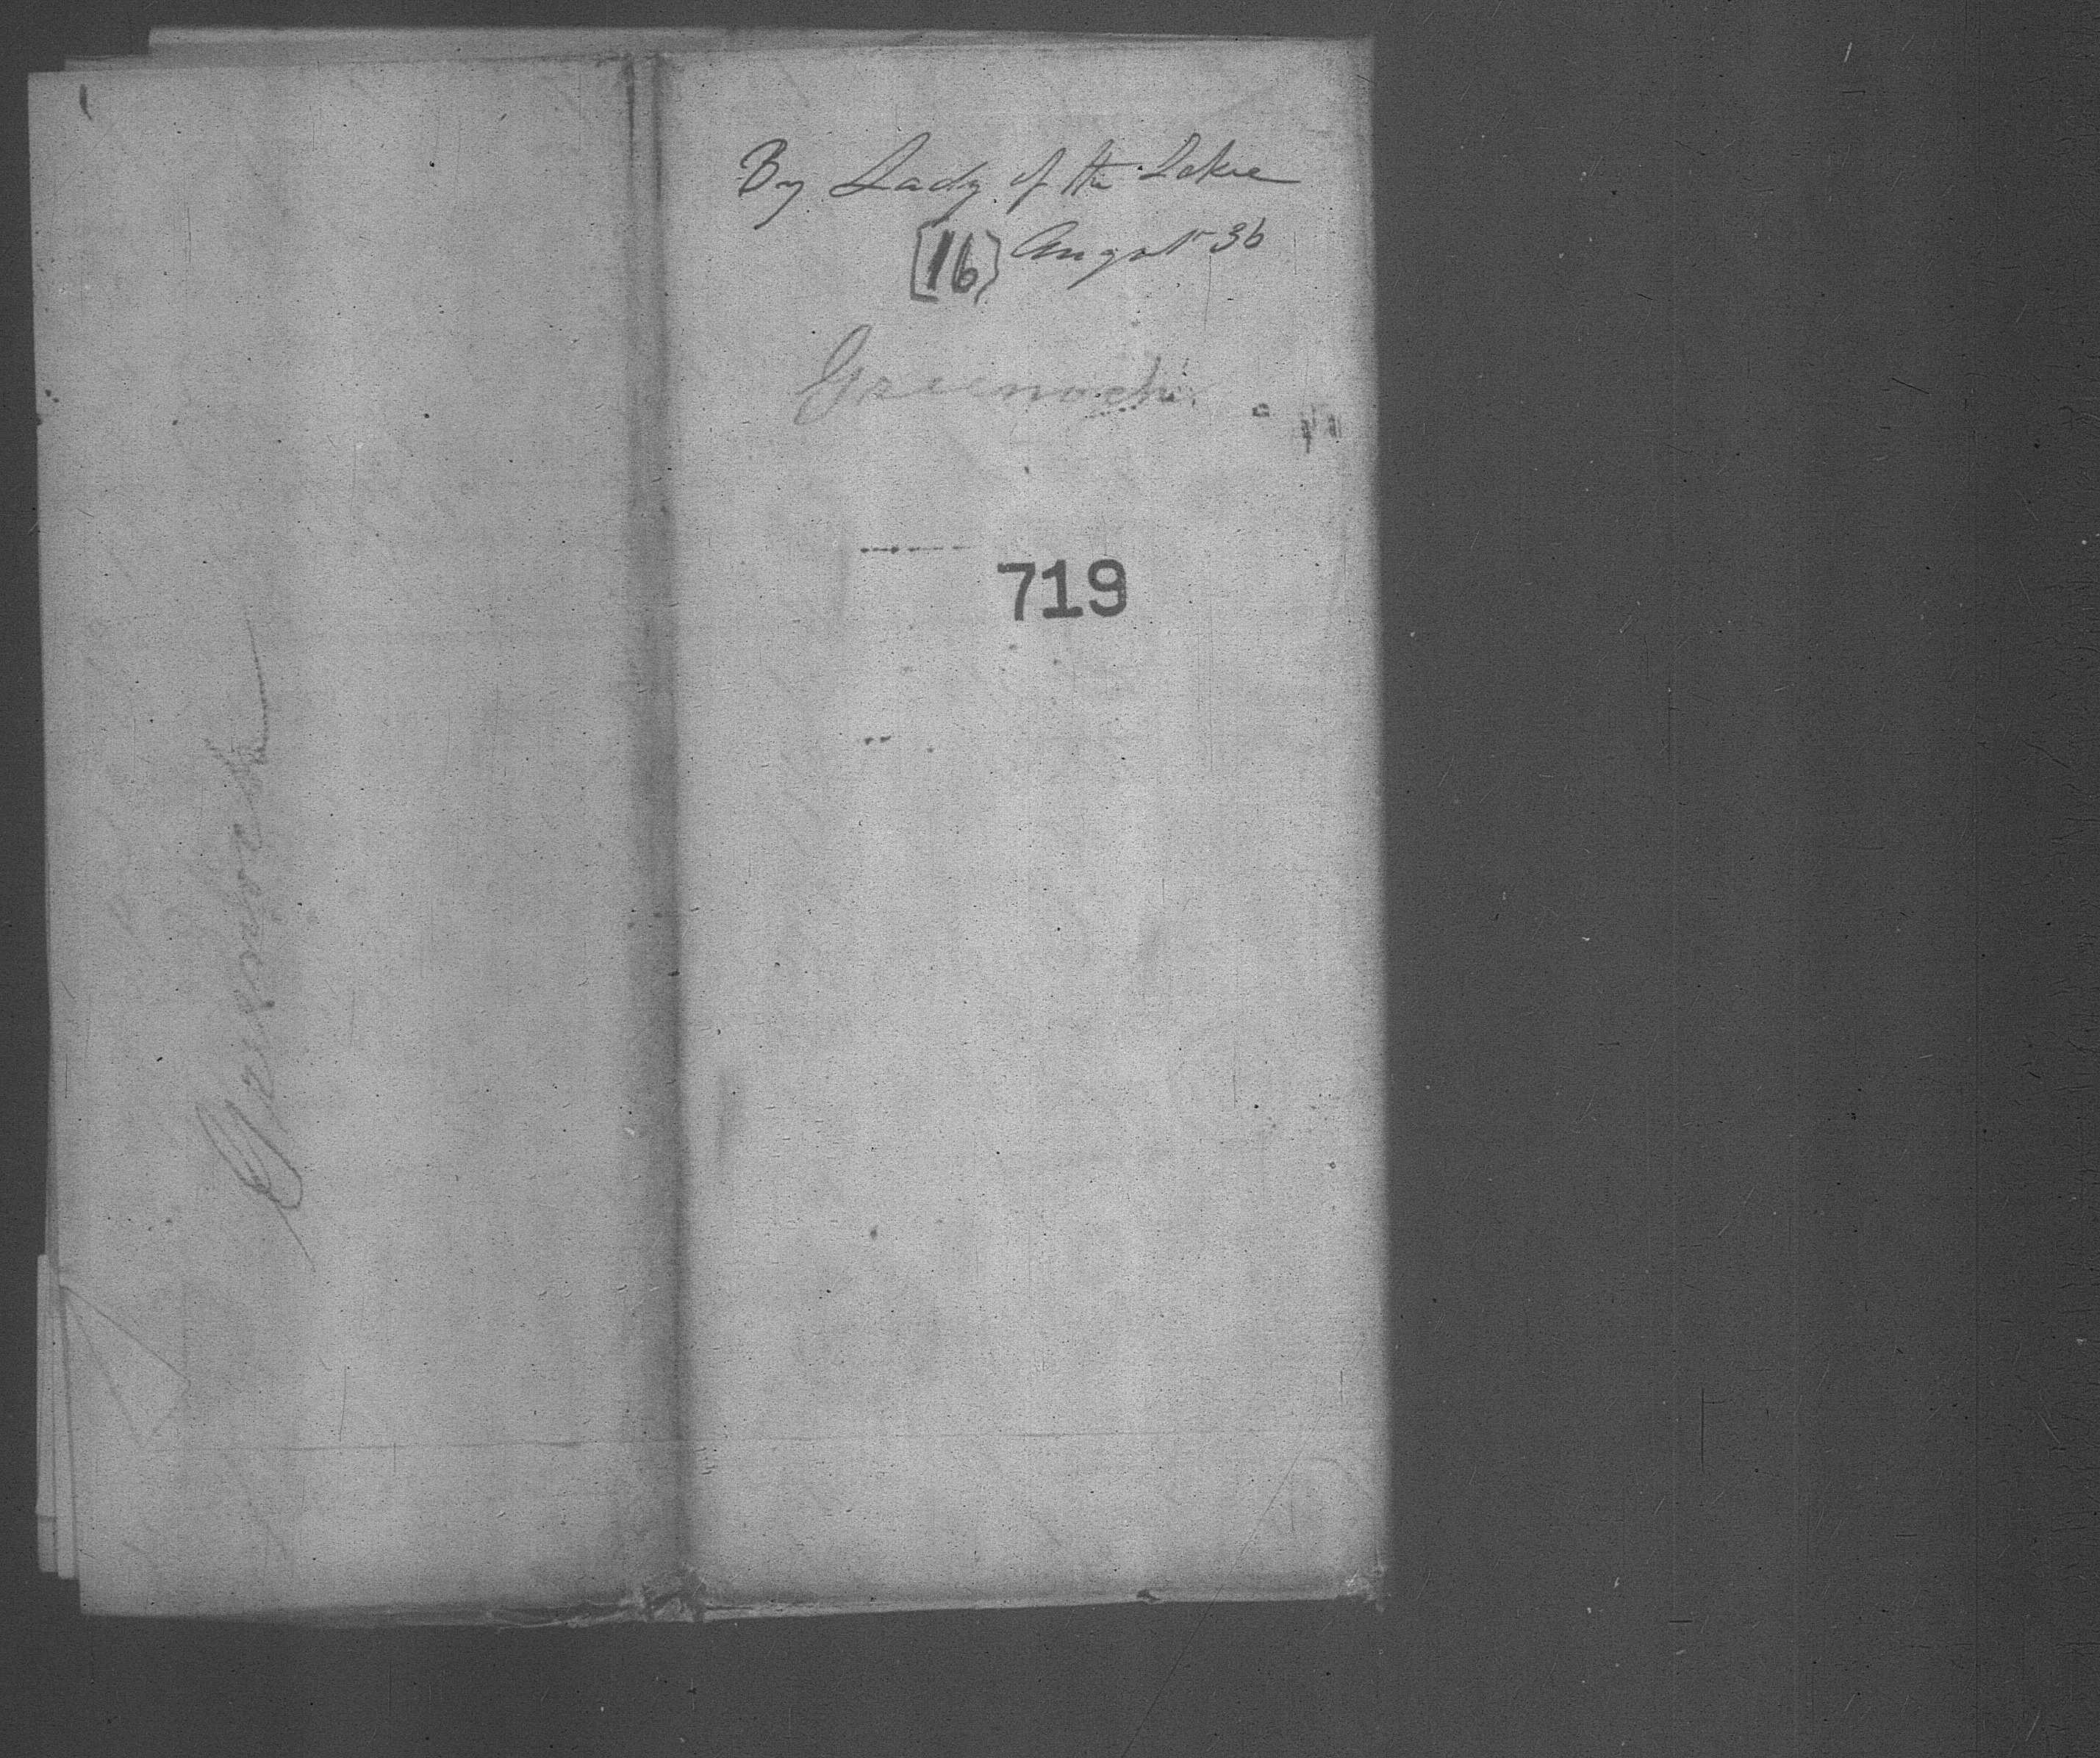 By Lady of the Lake
[16] August 36
Greenock
719
Greenock